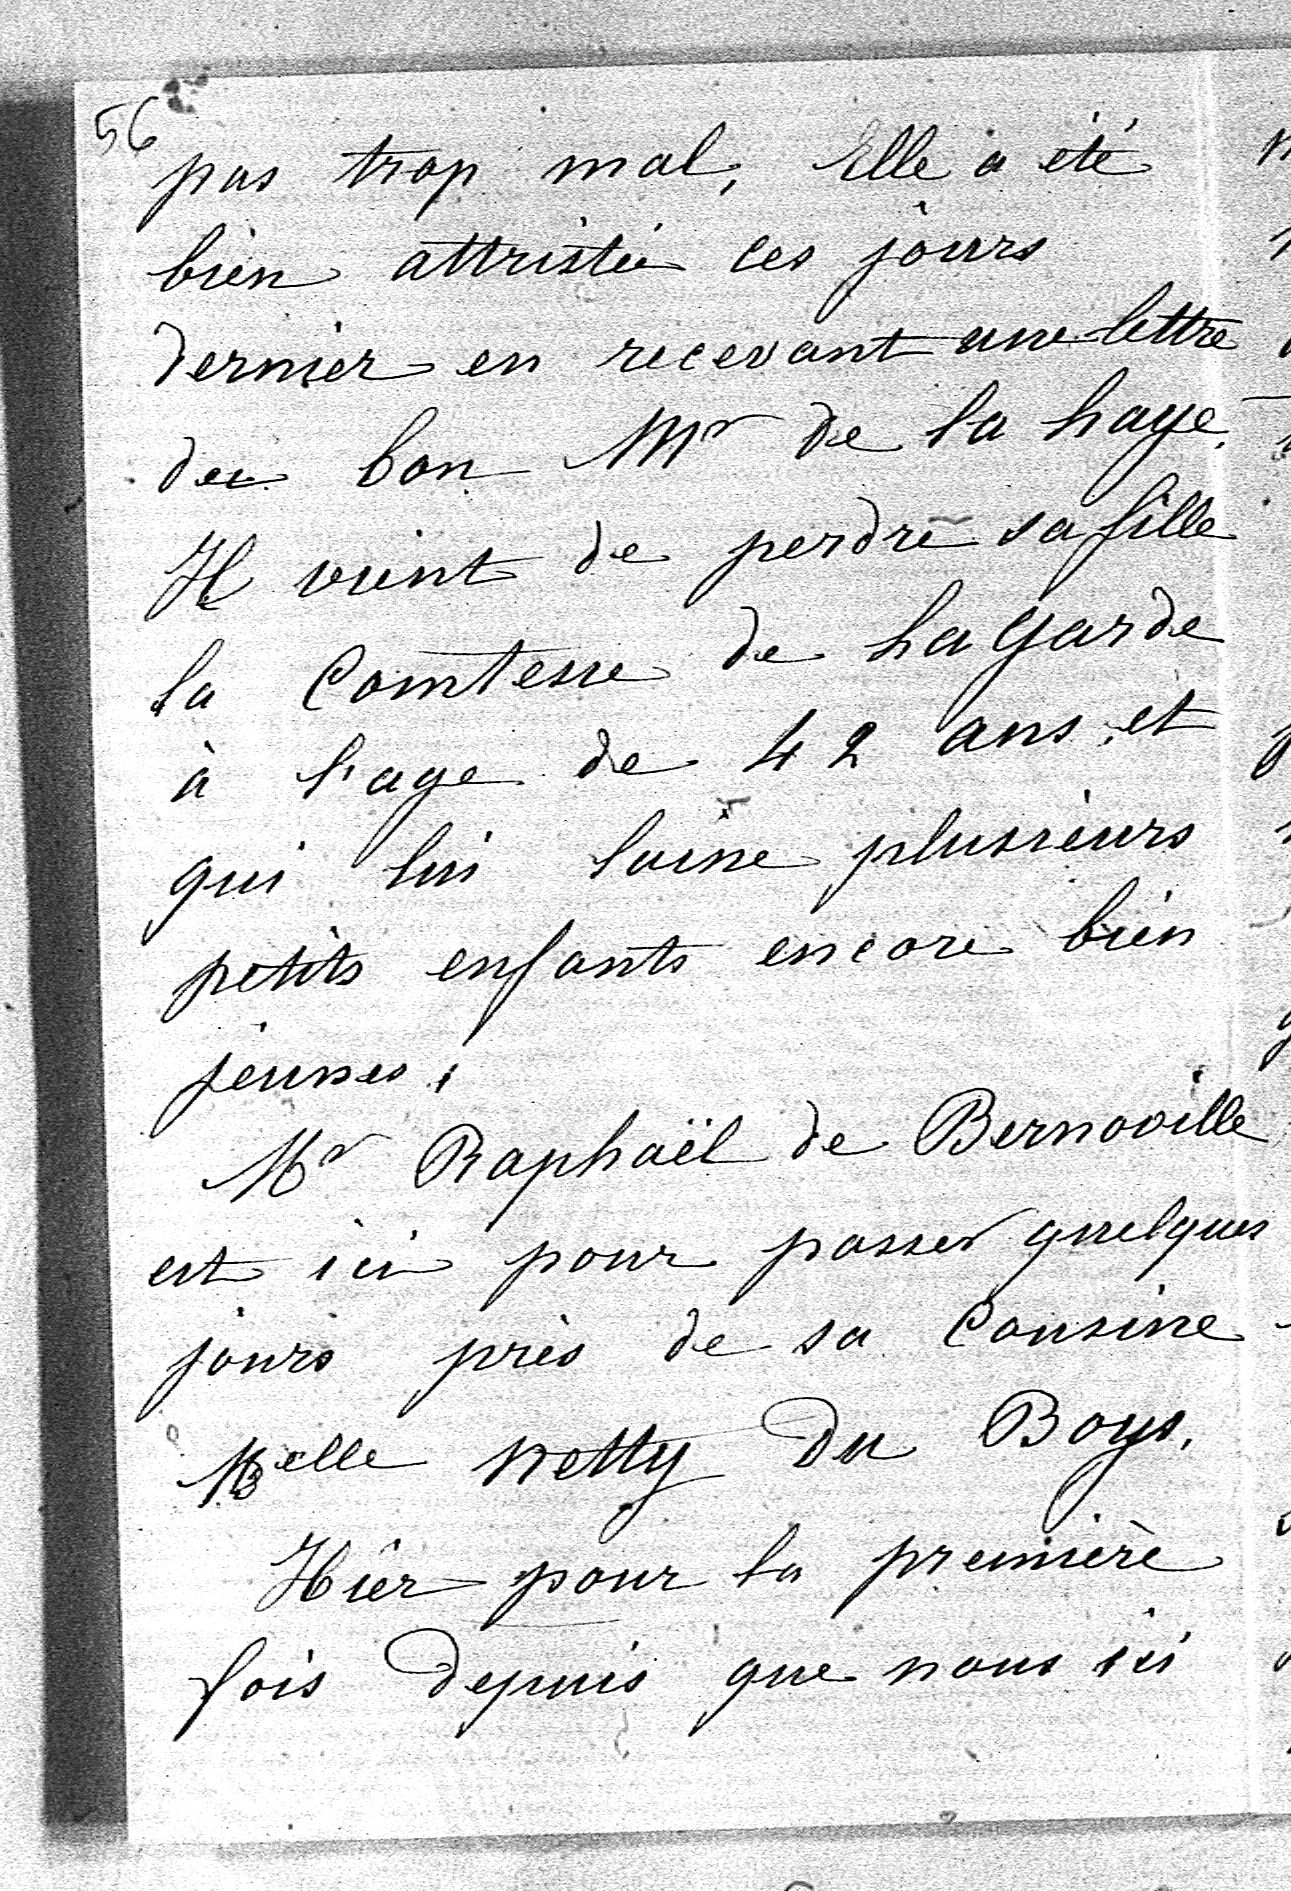 56
pas trop mal, Elle a été
bien attristée ces jours
dernier en recevant une lettre
du bon Mr de la haye.
Il vient de perdre sa fille
la Comtesse de Lagarde
à l'age de 42 ans et
qui lui laisse plusieurs
petits enfants encore bien
jeunes.
Mr Raphaël de Bernoville
est ici pour passer quelques
jours près de sa Cousine
Melle Netty Du Boys.
Hier pour la première
fois depuis que nous ici